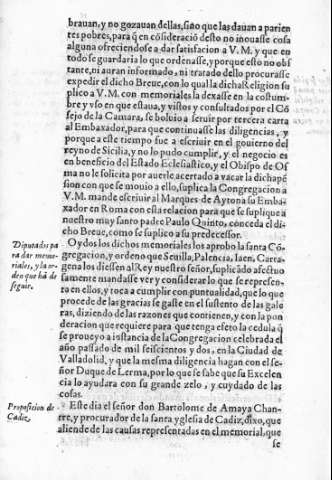 brauan, y no gozauan dellas, sino que las dauan a parien
tes pobres, para q̃ en cõsideració desto no inouasse cosa
alguna ofreciendose a dar satisfacion a V. M. y que en
todo se guardaria lo que ordenasse, y porque esto no obs
tante, ni auran informado, ni tratado dello procurasse
expedir el dicho Breue, con lo qual la dicha Religion su
plico a V. M. con memoriales la dexasse en la costum-
bre y vso en que estaua, y vistos y consultados por el Cõ
sejo de la Camara, se boluio a seruir por tercera carta
al Embaxador, para que continuasse las diligencias, y
porque a este tiempo fue a escriuir en el gouierno del
reyno de Sicilia, y no lo pudo cumplir, y el negocio es
en beneficio del Estado Eclesiastico, y el Obispo de Os
ma no le solicita por auerle acertado a vacar la dichapẽ
sion con que se mouio a ello, suplica la Congregacion a
V. M. mande escriuir al Marques de Aytona su Emba
xador en Roma con esta relacion para que se suplique a
nuestro muy santo padre Paulo Quinto, conceda el di-
cho Breue, como se suplico a su predecessor.
Diputados pa
ra dar memo-
riales, y la or-
den que há de
seguir.
Oydos los dichos memoriales los aprobo la santa Cõ
gregacion, y ordeno que Seuilla, Palencia, Iaen, Carta-
gena los diessen al Rey nuestro señor, suplicádo afectuo
samente mandasse ver y considerar lo que se represen-
to en ellos, y toca a cumplir con puntualidad, que lo que
procede de las gracias se gaste en el sustento de las galo
ras, diziendo de las razones que contienen, y con la pon
deracion que requiere para que tenga efeto la cedula q̃
se proueyo a instancia de la Congregacion celebrada el
año passado de mil seiscientos y dos, en la Ciudad de
Valladolid, y que la mesma diligencia hagan con el se-
ñor Duque de Lerma, por lo que se sabe que su Excelen
cia lo ayudara con su grande zelo, y cuydado de las
cosas.
Proposicion de
Cadiz.
Este dia el señor don Bartolome de Amaya Chan-
tre, y procurador de la santa yglesia de Cadiz, dixo, que
aliende de las causas representadas en el memorial, que
se